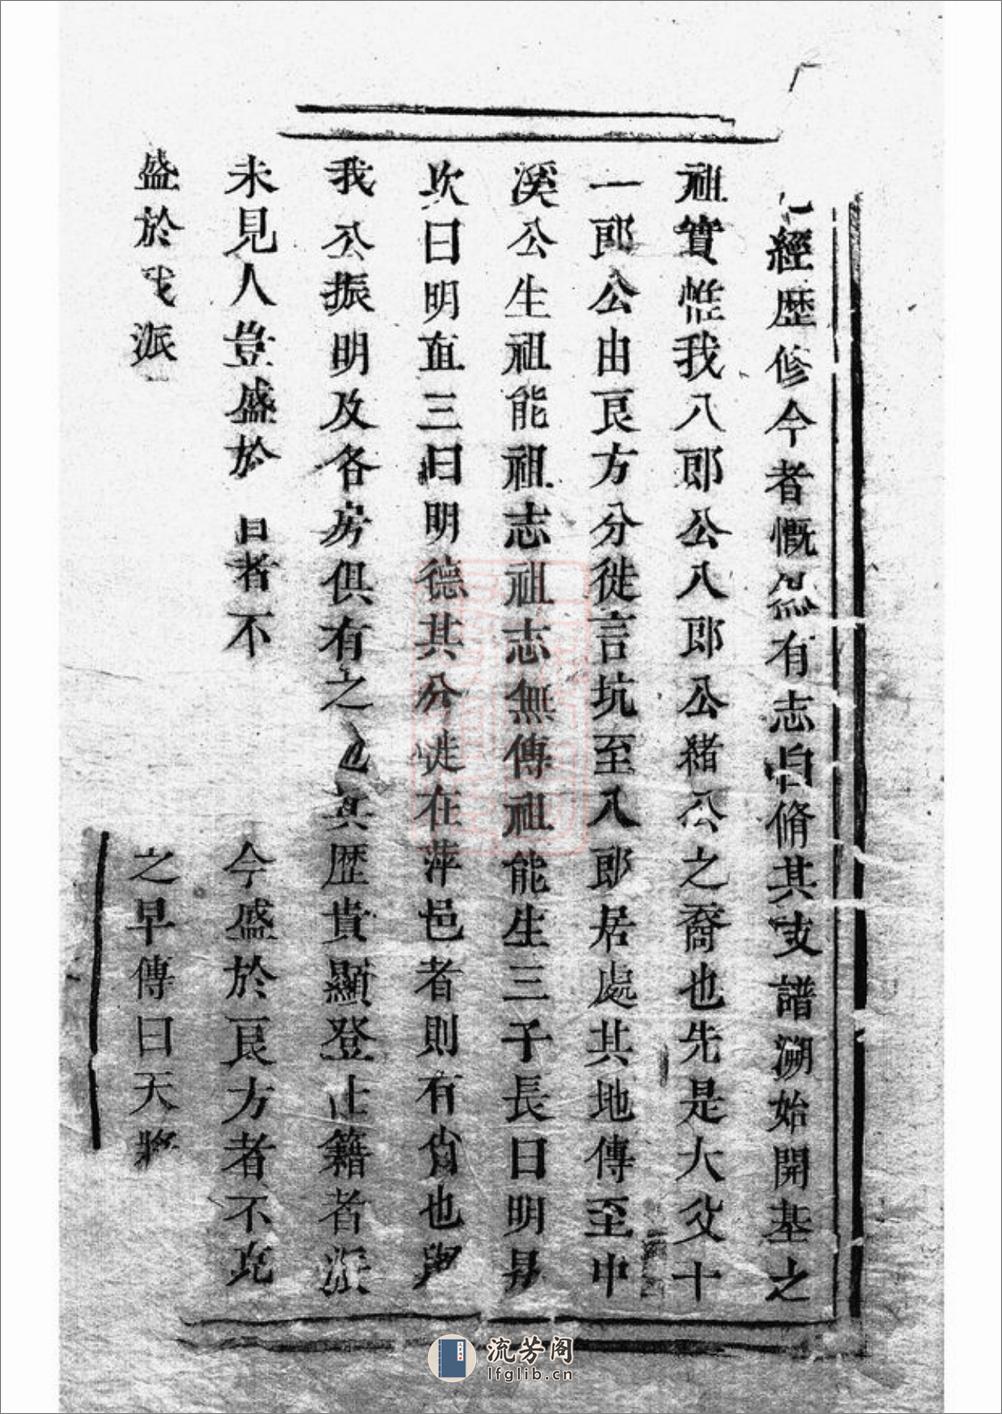 經歴修今者慨然有志自脩其支譜溯始開基之
祖實惟我八郎公八郎公緒公之裔也先是大父十
一郎公由良方分徙言坑至八郎居處其地傳至中
溪公生祖能祖志祖志無傳祖能生三子長曰明昇
次曰明直三曰明德其分徙在萍邑者則有肖也與
我公振明及各房俱有之其歴貴顯登仕籍者派
未見人豈盛於者不今盛於良方者不克
盛於我派之早傳曰天將
流芳阁
lfglib.cn